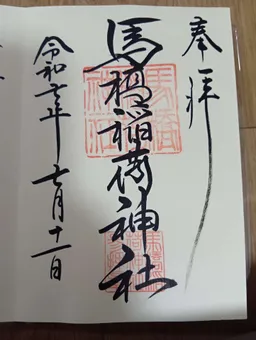 奉拝
馬橋稲荷神社
令和七年七月十一日